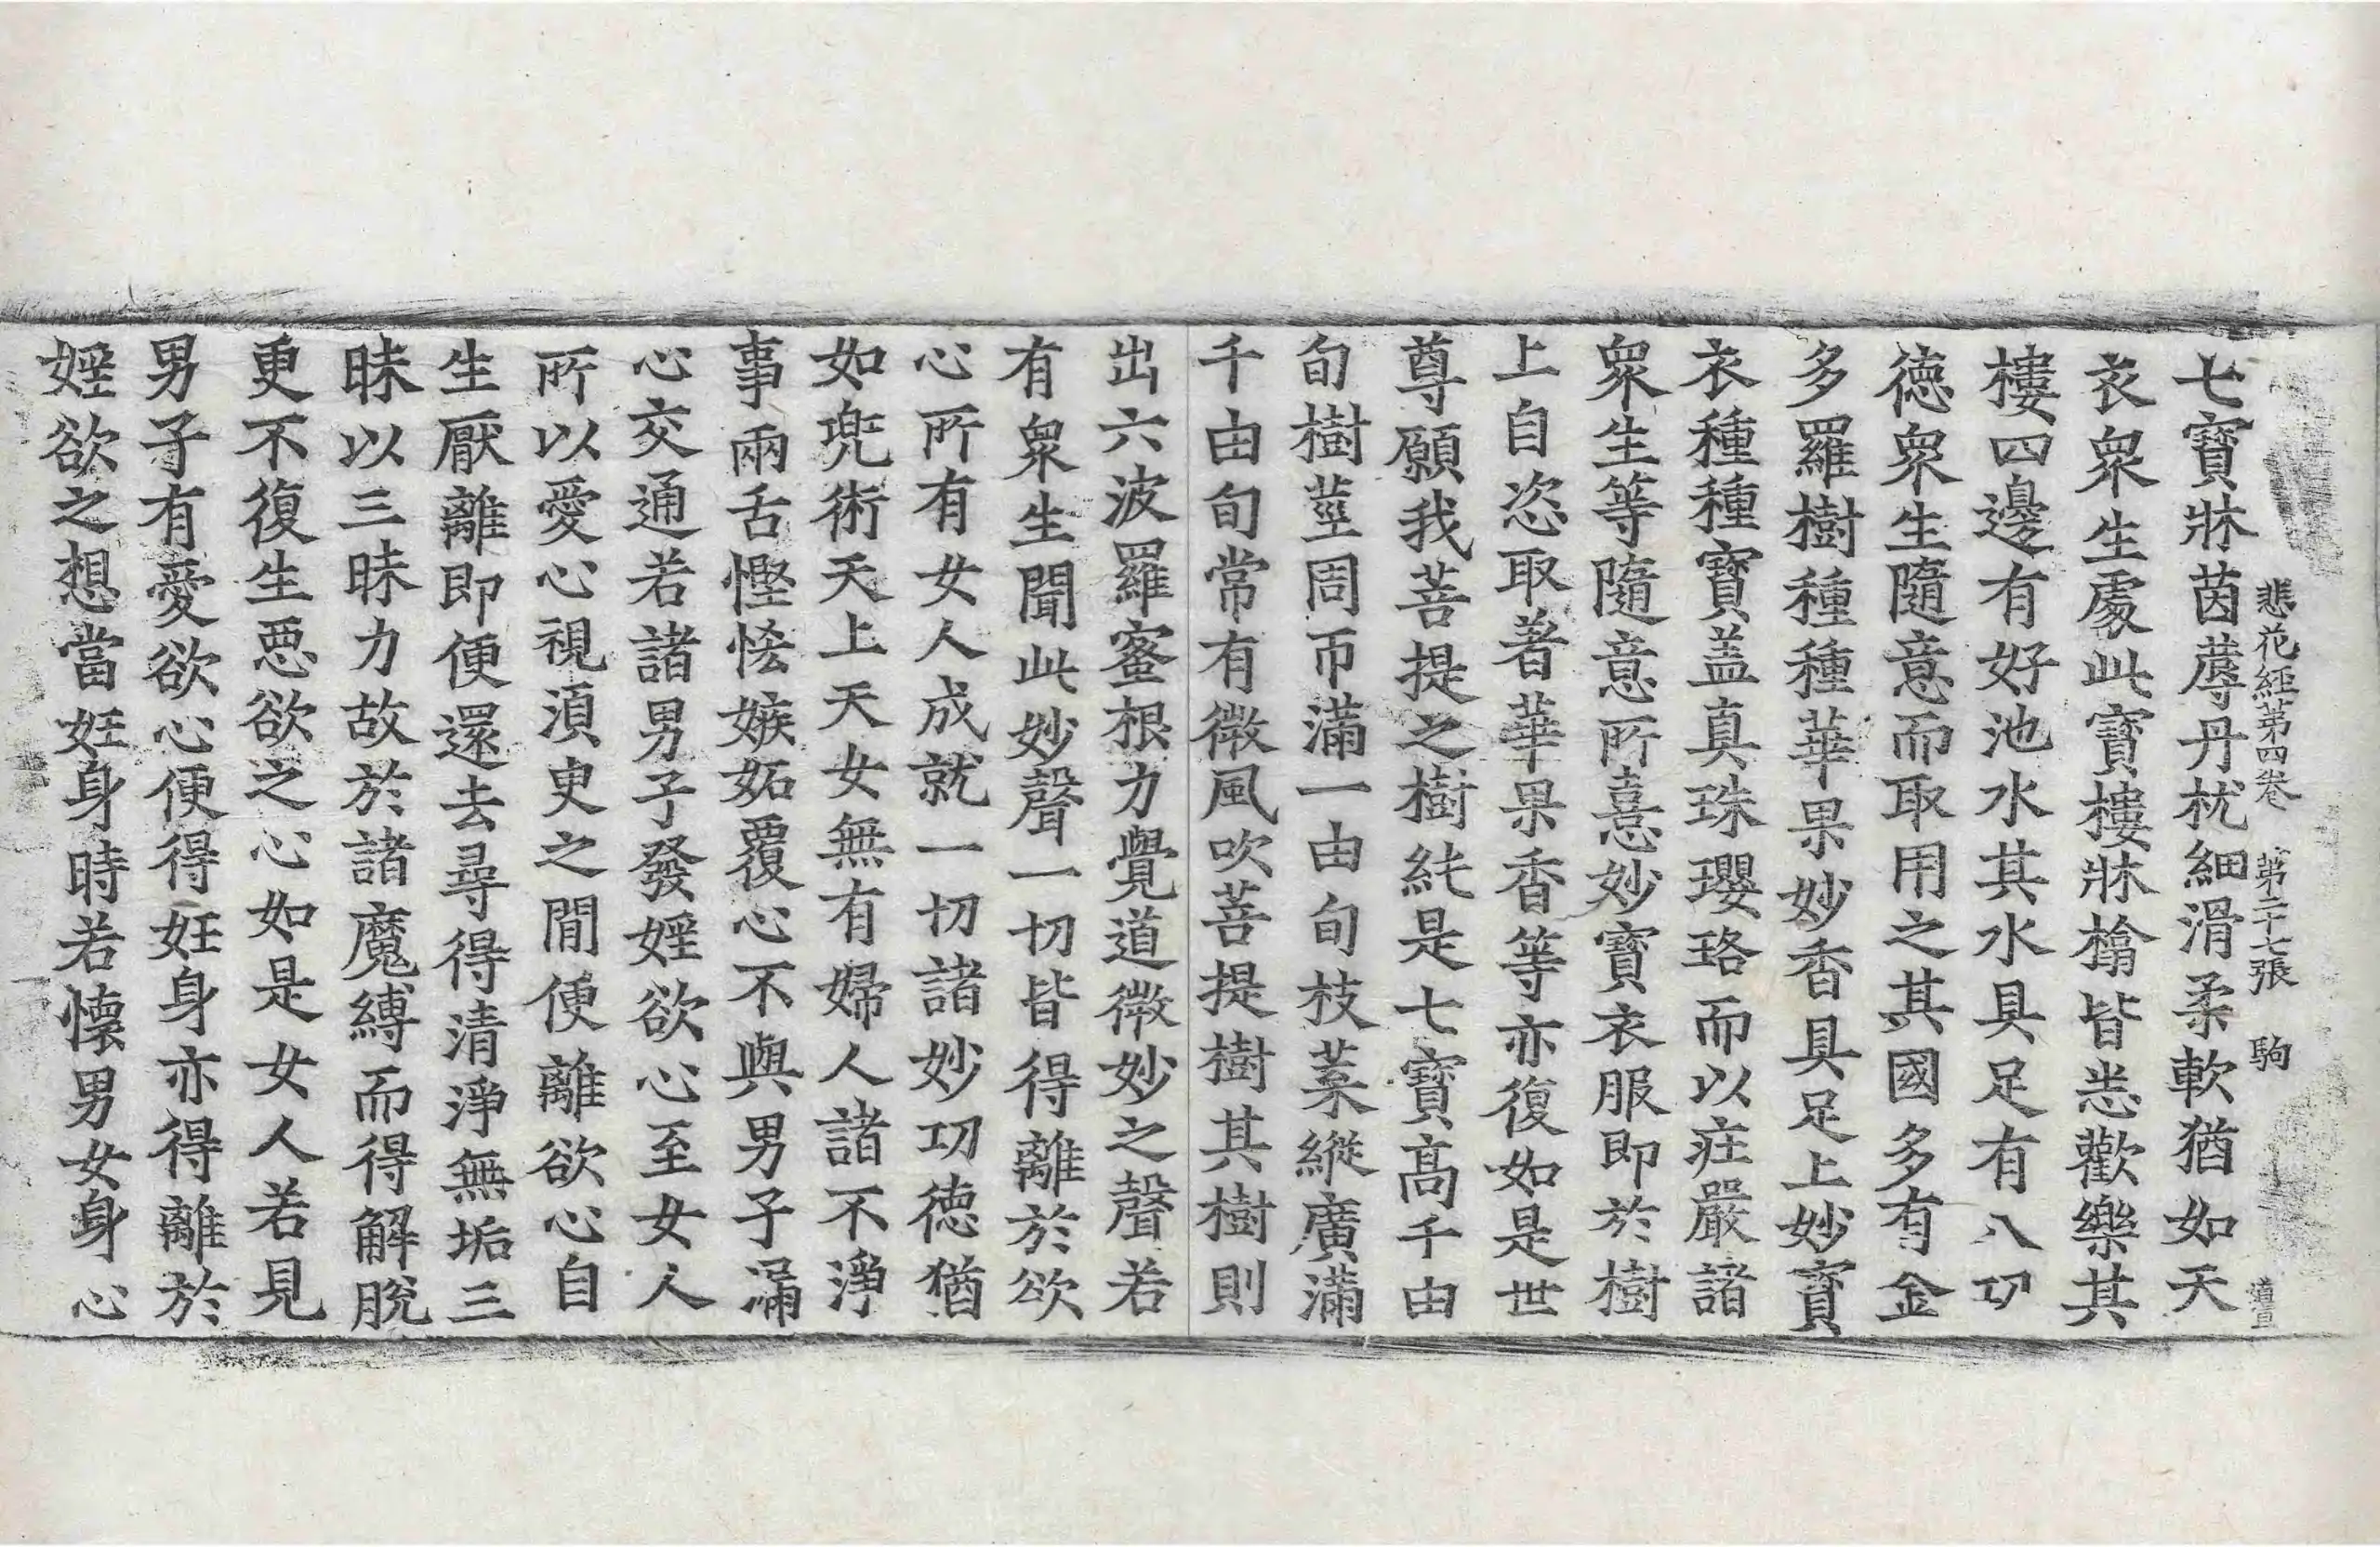 悲花經第四卷 第二十七張 駒
七寶牀茵蓐丹枕細滑柔軟猶如天
衣衆生處此寶樓牀榻皆悉歡樂其
樓四邊有好池水其水具足有八功
德衆生隨意而取用之其國多有金
多羅樹種種華果妙香具足上妙寶
衣種種寶盖真珠瓔珞而以莊嚴諸
衆生等隨意所憙妙寶衣服即於樹
上自恣取著華果香等亦復如是世
尊願我菩提之樹純是七寶髙千由
旬樹莖周帀滿一由旬枝葉縱廣滿
千由旬常有微風吹菩提樹其樹則
出六波羅蜜根力覺道微妙之聲若
有衆生聞此妙聲一切皆得離於欲
心所有女人成就一切諸妙功德猶
如兜術天上天女無有婦人諸不淨
事兩舌慳悋嫉妬覆心不與男子漏
心交通若諸男子發婬欲心至女人
所以愛心視湏臾之間便離欲心自
生厭離即便還去尋得清淨無垢三
昧以三昧力故於諸魔縛而得解脫
更不復生惡欲之心如是女人若見
男子有愛欲心便得妊身亦得離於
婬欲之想當妊身時若懷男女身心